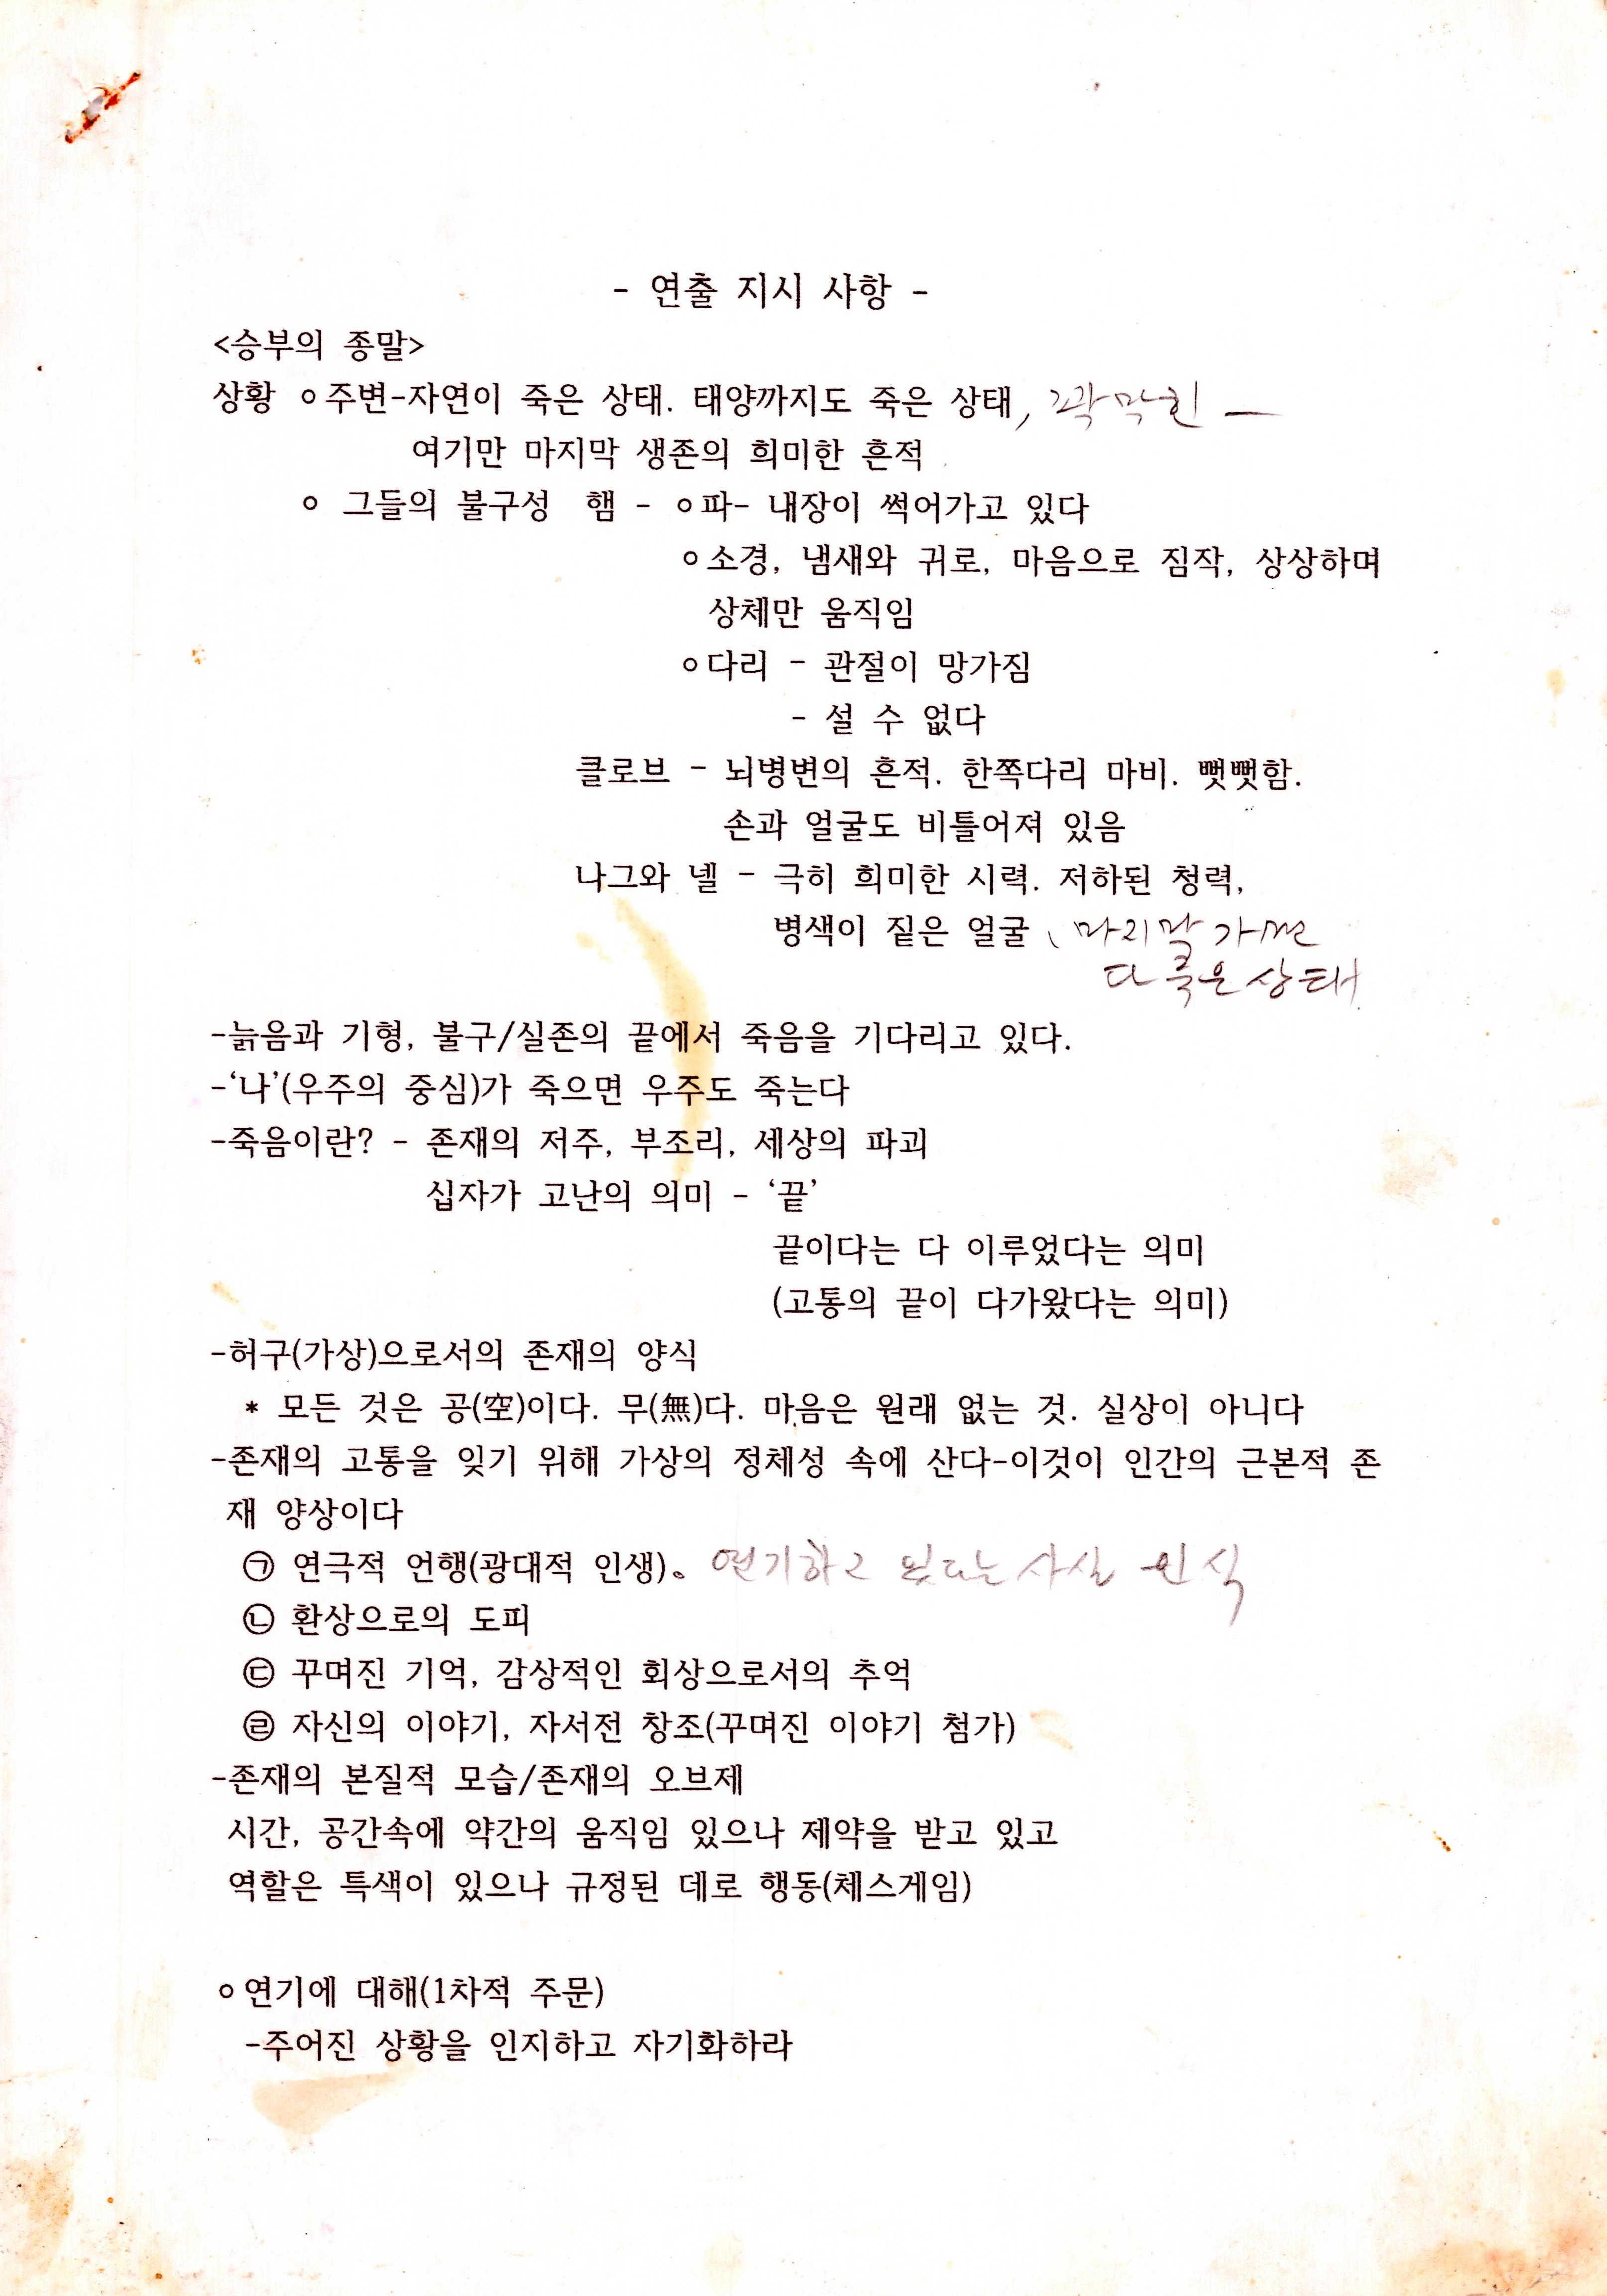 - 연출 지시 사항 -
<승부의 종말>
상황 ㅇ주변-자연이 죽은 상태. 태양까지도 죽은 상태, 꽉막힌 —
여기만 마지막 생존의 희미한 흔적
ㅇ 그들의 불구성 햄 - ㅇ파- 내장이 썩어가고 있다
ㅇ소경, 냄새와 귀로, 마음으로 짐작, 상상하며
상체만 움직임
ㅇ다리 - 관절이 망가짐
- 설 수 없다
클로브 - 뇌병변의 흔적. 한쪽다리 마비. 뻣뻣함.
손과 얼굴도 비틀어져 있음
나그와 넬 - 극히 희미한 시력. 저하된 청력,
병색이 짙은 얼굴,
다 죽은 상태
-늙음과 기형, 불구/실존의 끝에서 죽음을 기다리고 있다.
-‘나’(우주의 중심)가 죽으면 우주도 죽는다
-죽음이란? - 존재의 저주, 부조리, 세상의 파괴
십자가 고난의 의미 - ‘끝’
끝이다는 다 이루었다는 의미
(고통의 끝이 다가왔다는 의미)
-허구(가상)으로서의 존재의 양식
* 모든 것은 공(空)이다. 무(無)다. 마음은 원래 없는 것. 실상이 아니다
-존재의 고통을 잊기 위해 가상의 정체성 속에 산다-이것이 인간의 근본적 존
재 양상이다
㉠ 연극적 언행(광대적 인생)。 연기하고 있다는 사실 인식
㉡ 환상으로의 도피
㉢ 꾸며진 기억, 감상적인 회상으로서의 추억
㉣ 자신의 이야기, 자서전 창조(꾸며진 이야기 첨가)
-존재의 본질적 모습/존재의 오브제
시간, 공간속에 약간의 움직임 있으나 제약을 받고 있고
역할은 특색이 있으나 규정된 데로 행동(체스게임)
ㅇ연기에 대해(1차적 주문)
-주어진 상황을 인지하고 자기화하라